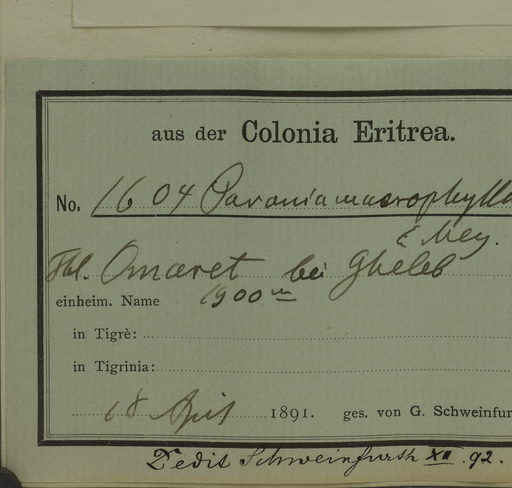 aus der Colonia Eritrea.
No. 1604 Pavonia macrophylla
E. Mey.
Thl. Omaret bei Ghêleb
einheim. Name 1900 m
in Tigrè:
in Tigrinia:
18 April 1891. ges. von G. Schweinfur
Dedit Schweinfurth XII. 92.